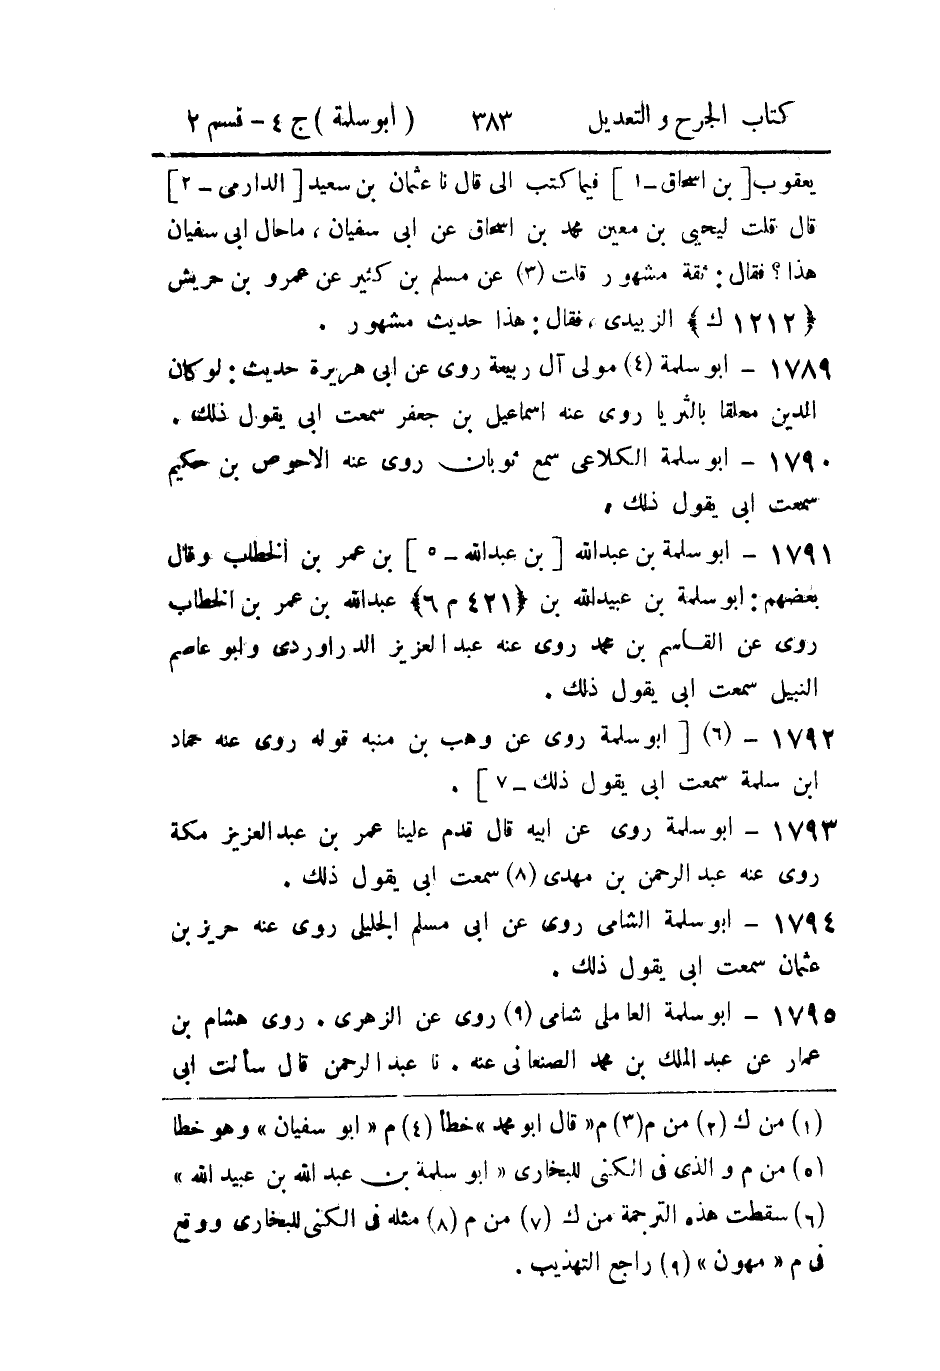 كتاب الجرح والتعديل ٣٨٣ (ابو سلمة) ج ٤ - قسم ٢
يعقوب [بن اسحاق - ١] فيما كتب الى قال نا عثمان بن سعيد [الدارمى - ٢]
قال قلت ليحيى بن معين محمد بن اسحاق عن ابى سفيان ، ما حال ابى سفيان
هذا ؟ فقال : ثقة مشهور قلت (٣) عن مسلم بن كثير عن عمرو بن حريش
﴿١٢١٢ ك﴾ الزبيدى ، فقال : هذا حديث مشهور .
١٧٨٩ - ابو سلمة (٤) مولى آل ربيعة روى عن ابى هريرة حديث : لو كان
الدين معلقا بالثريا روى عنه اسماعيل بن جعفر سمعت ابى يقول ذلك .
١٧٩٠ - ابو سلمة الكلاعى سمع ثوبان روى عنه الاحوص بن حكيم
سمعت ابى يقول ذلك .
١٧٩١ - ابو سلمة بن عبدالله [بن عبدالله - ٥] بن عمر بن الخطاب وقال
بعضهم : ابو سلمة بن عبيدالله بن ﴿٤٢١ م ٦﴾ عبدالله بن عمر بن الخطاب
روى عن القاسم بن محمد روى عنه عبد العزيز الدراوردى وابو عاصم
النبيل سمعت ابى يقول ذلك .
١٧٩٢ - (٦) [ابو سلمة روى عن وهب بن منبه قوله روى عنه حماد
ابن سلمة سمعت ابى يقول ذلك - ٧] .
١٧٩٣ - ابو سلمة روى عن ابيه قال قدم علينا عمر بن عبد العزيز مكة
روى عنه عبد الرحمن بن مهدى (٨) سمعت ابى يقول ذلك .
١٧٩٤ - ابو سلمة الشامى روى عن ابى مسلم الجليلى روى عنه حريز بن
عثمان سمعت ابى يقول ذلك .
١٧٩٥ - ابو سلمة العاملى شامى (٩) روى عن الزهرى . روى هشام بن
عمار عن عبد الملك بن محمد الصنعانى عنه . نا عبد الرحمن قال سألت ابى
(١) من ك (٢) من م (٣) م « قال ابو محمد » خطأ (٤) م « ابو سفيان » وهو خطا
(٥) من م و الذى فى الكنى للبخارى « ابو سلمة بن عبد الله بن عبيد الله »
(٦) سقطت هذه الترجمة من ك (٧) من م (٨) مثله فى الكنى للبخارى ووقع
فى م « مهون » (٩) راجع التهذيب .